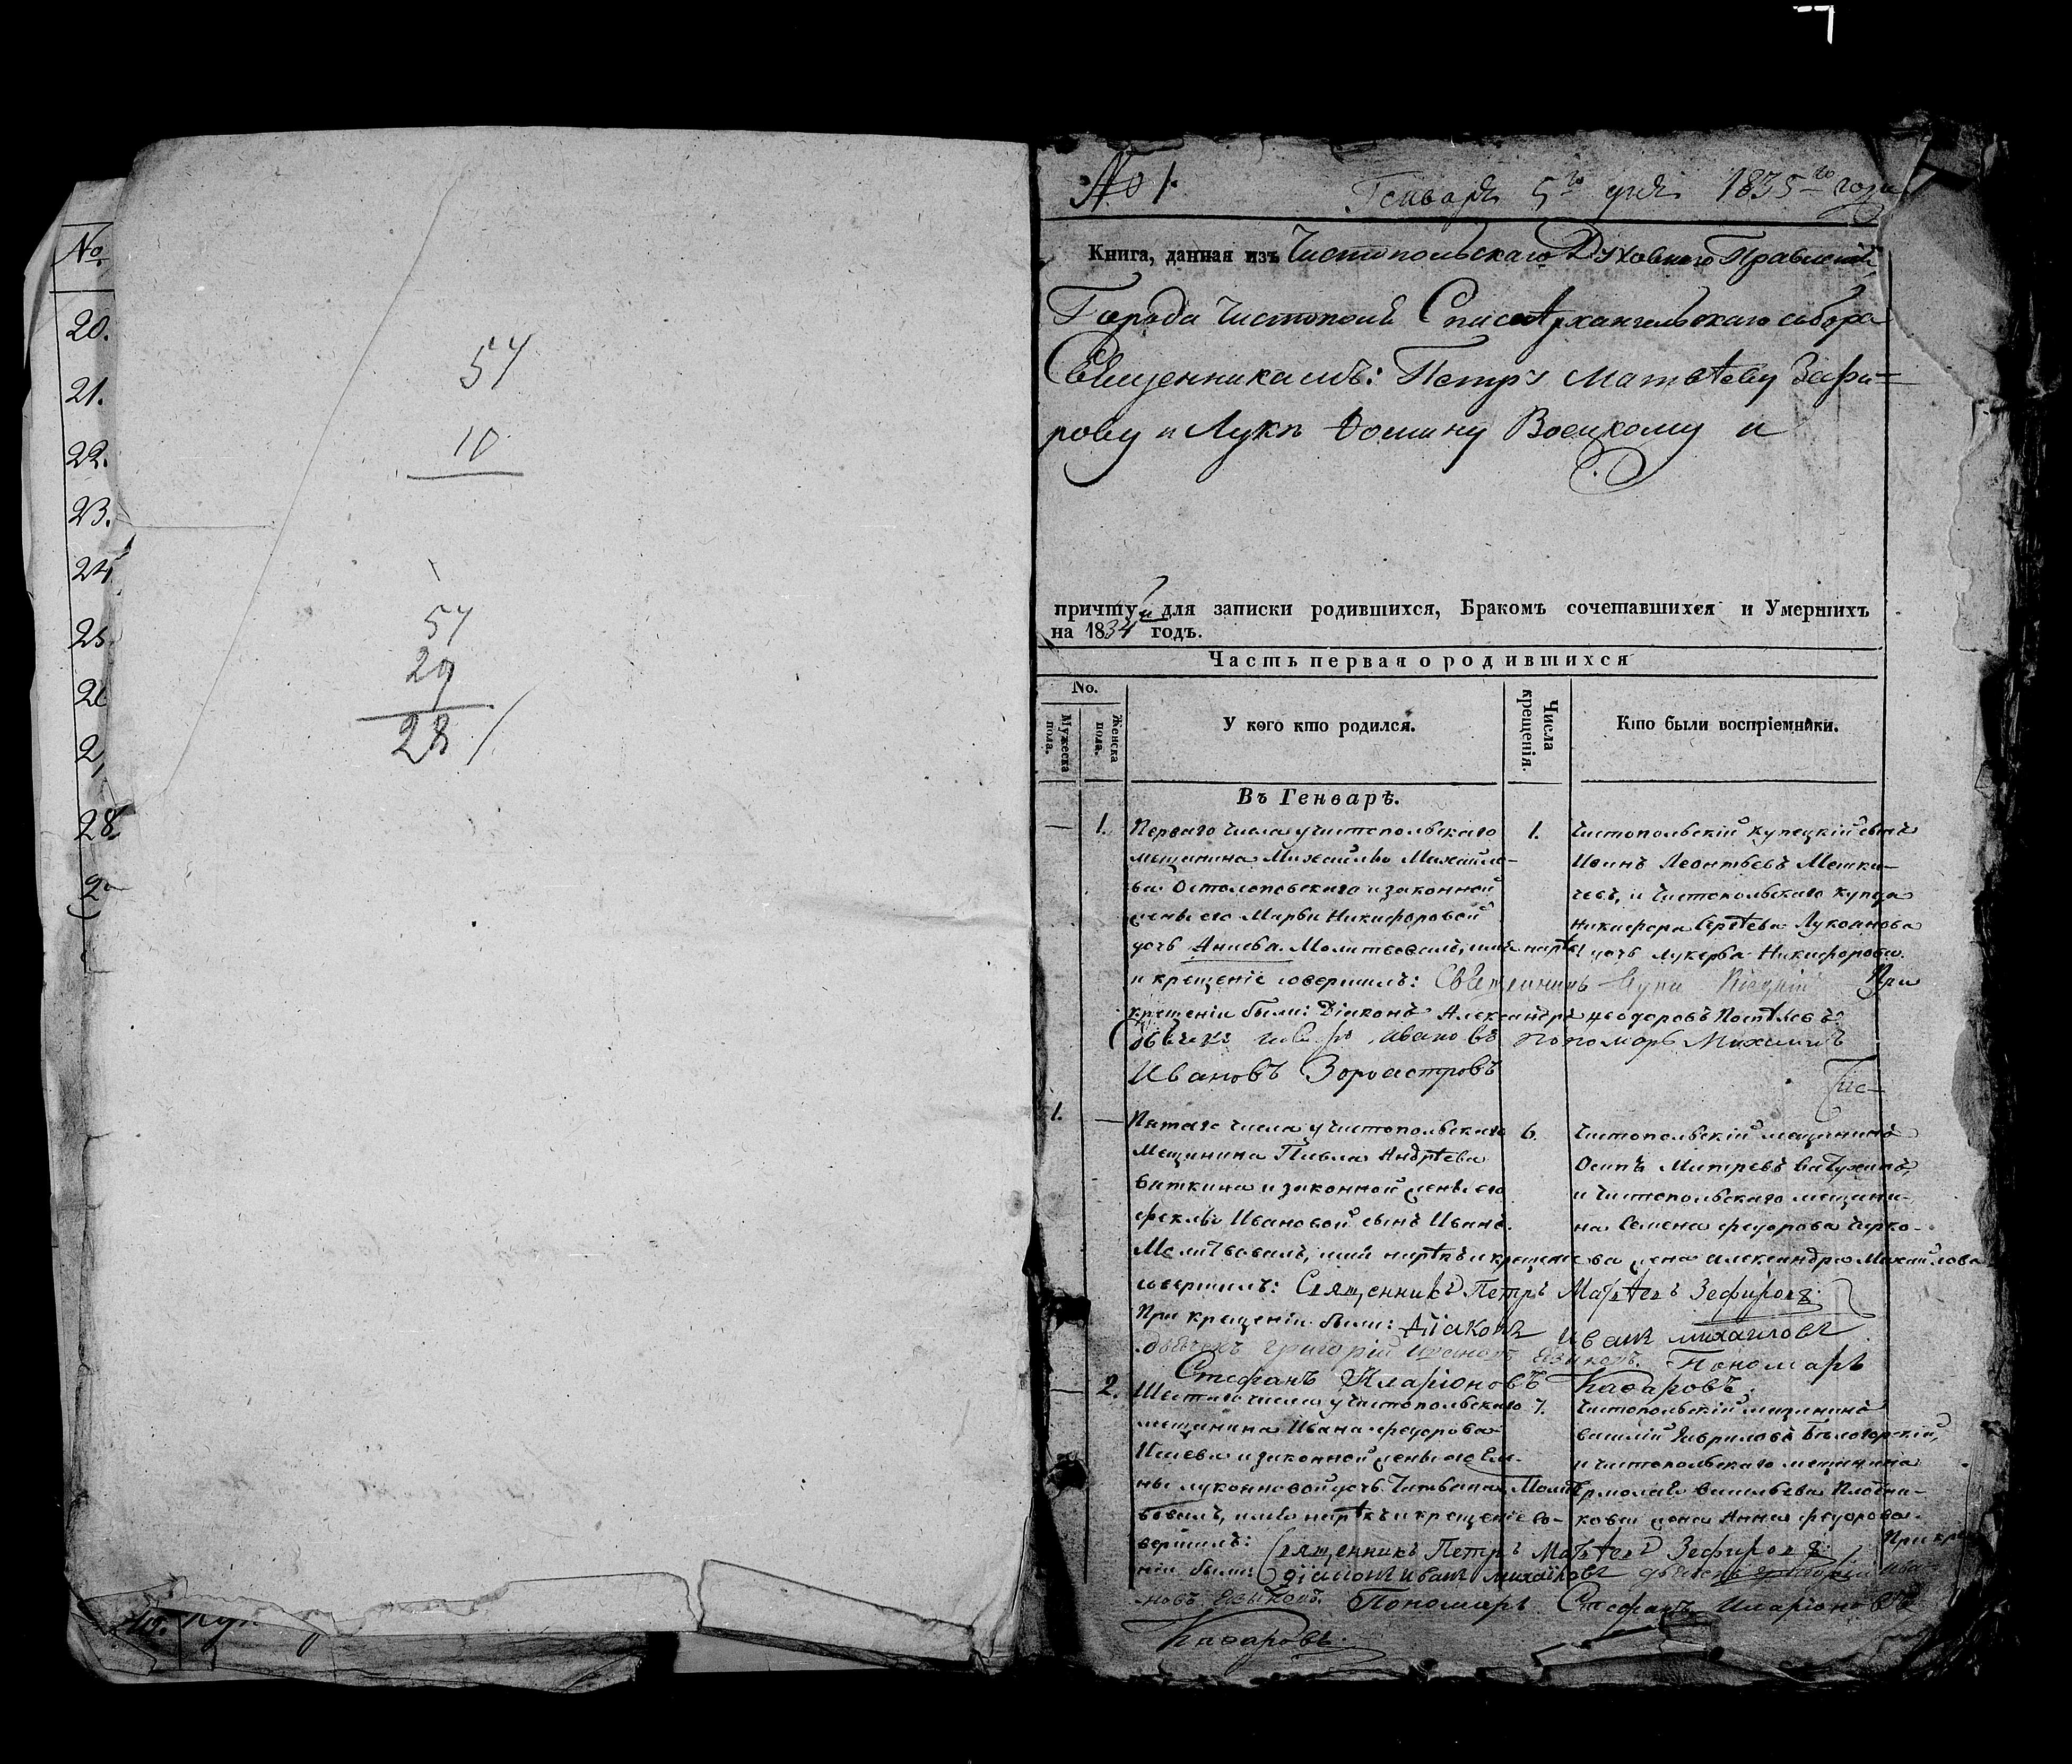 No
20.
21.
22.
23.
24.
25.
28.
54
10
54
29
28
No 1.
Генваря 5го дня 1835го года
Книга, данная изъ Чистопольскаго Духовнаго Правленія
Города Чистополя Архангельскаго собора
Священникамъ: Петру Матвѣеву Зефи=
рову и Лукѣ Воецкому и
причту для записки родившихся, Бракомъ сочетавшихся и Умершихъ
на 1834 годъ.
Часть первая о родившихся
No.
Мужеска пола.
Женска пола.
У кого кто родился.
Числа крещенія.
Кто были воспріемники.
Въ Генварѣ.
— 1.
Перваго числа у чистопольскаго
мещанина Михайлы Михайло-
ва Остолоповскаго и законной
жены его Марфы Никифоровой
дочь Анисья. Молитвовалъ, имя нарѣкъ
и крещеніе совершилъ: Священникъ Лука При
крещеніи были: Діаконъ Александръ Феодоровъ
Ивановъ Пономарь Михаилъ
Ивановъ Зороастровъ
1.
Чистопольскій купецкій сынъ
Иванъ Леонтьевъ Мешки-
чевъ, и Чистопольскаго купца
Никифора Сергѣева Лукоянова
дочь Лукерья Никифорова.
1. —
Пятаго числа у чистопольскаго
Мещанина Павла Андрѣева
Вяткина и законной жены его
Феклы Ивановой сынъ Иванъ.
Молитвовалъ, имя нарѣкъ и крещеніе
совершилъ: Священникъ Петръ Матвѣевъ Зефировъ
При крещеніи были: Діаконъ Иванъ Михайловъ
дьячекъ Григорій Ивановъ Языковъ. Пономарь
Стефанъ Иларіоновъ Кадаровъ.
6.
Чистопольскій мещанинъ
Осипъ Митревъ
и Чистопольскаго мещани-
на Семена Федорова Чирко-
ва жена Александра Михайлова
— 2.
Шестаго числа у Чистопольскаго
мещанина Ивана Федорова
и законной жены его Еле-
ны Лукояновой дочь Татьяна. Молит
вовалъ, имя нарѣкъ и крещеніе со-
вершилъ: Священникъ Петръ Матвѣевъ Зефировъ При креще
ніи были: діаконъ Иванъ Михайловъ дьячекъ Григорій Ива
новъ Языковъ. Пономарь Стефанъ Иларіоновъ
Кадаровъ.
7.
Чистопольскій мещанинъ
Василій Гавриловъ Бѣлогорскій,
и чистопольскаго мещанина
Ермолая Васильева Плотни-
кова жена Анна Федорова.